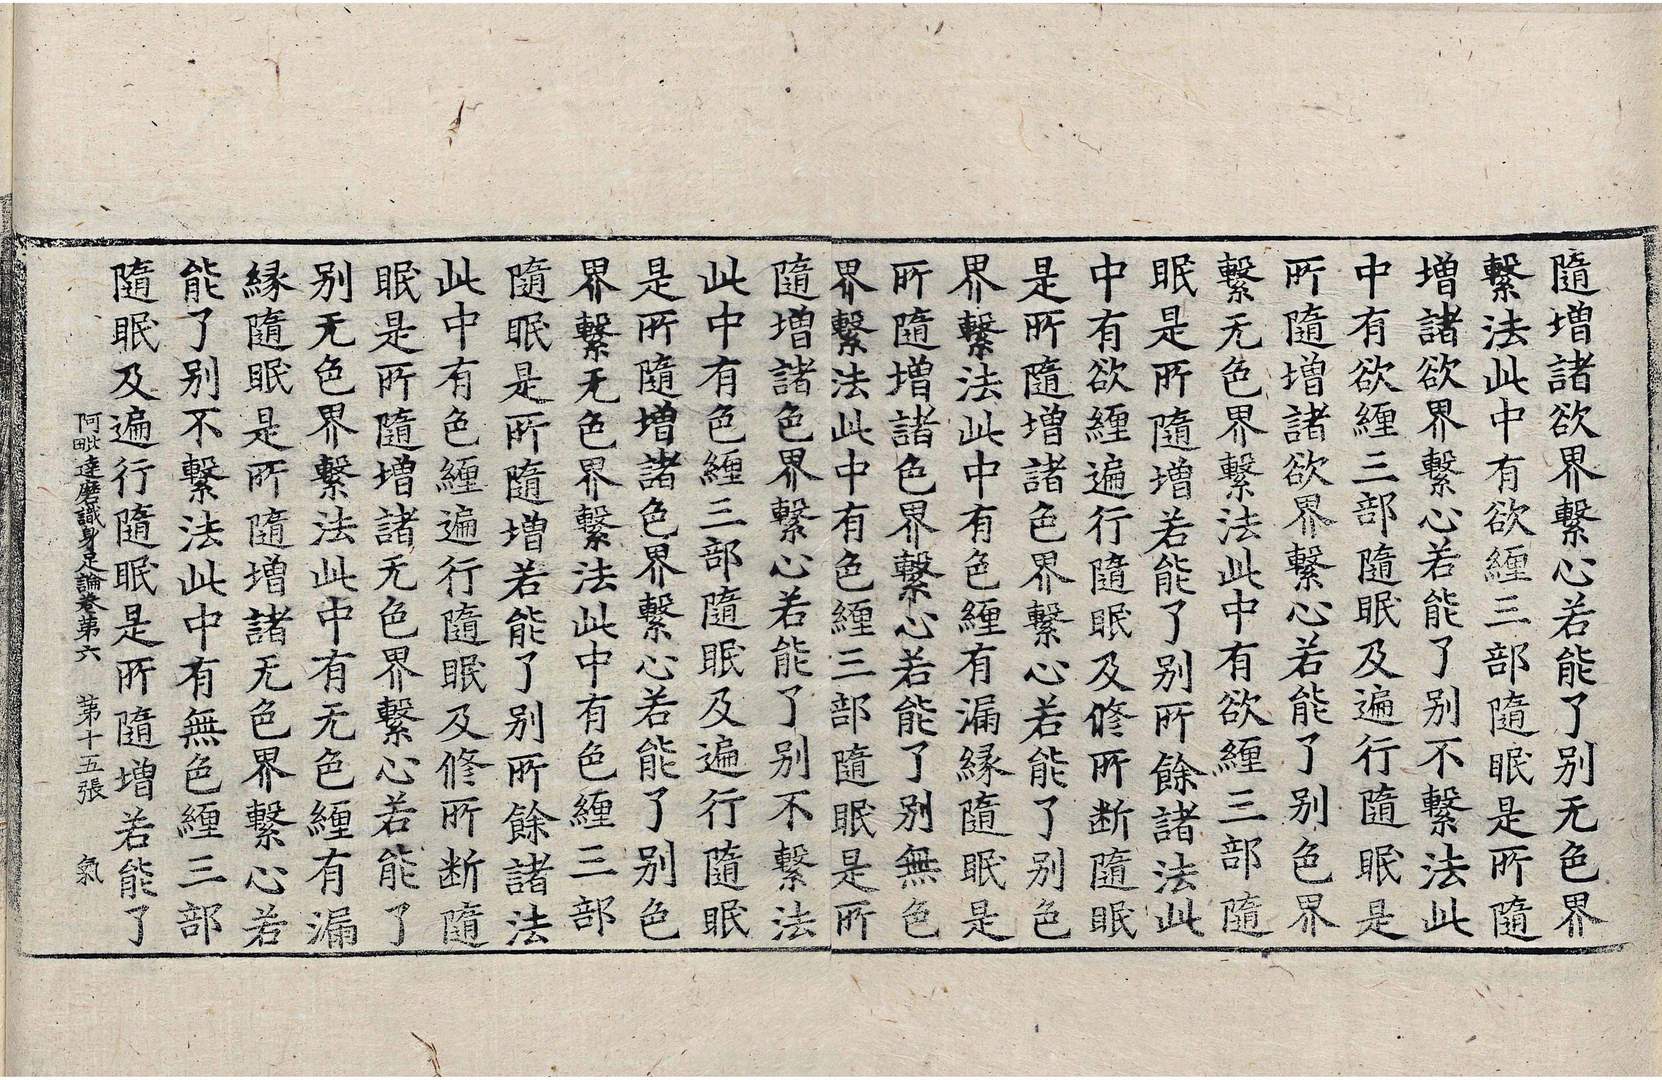 隨增諸欲界繫心若能了别无色界
繫法此中有欲纏三部隨眠是所隨
增諸欲界繫心若能了别不繫法此
中有欲纏三部隨眠及遍行隨眠是
所隨增諸欲界繫心若能了别色界
繫无色界繫法此中有欲纏三部隨
眠是所隨增若能了别所餘諸法此
中有欲纏遍行隨眠及修所断隨眠
是所隨增諸色界繫心若能了别色
界繫法此中有色纏有漏縁隨眠是
所隨增諸色界繫心若能了别無色
界繫法此中有色纏三部隨眠是所
隨增諸色界繫心若能了别不繫法
此中有色纏三部隨眠及遍行隨眠
是所隨增諸色界繫心若能了别色
界繫无色界繫法此中有色纏三部
隨眠是所隨增若能了别所餘諸法
此中有色纏遍行隨眠及修所断隨
眠是所隨增諸无色界繫心若能了
别无色界繫法此中有无色纏有漏
縁隨眠是所隨增諸无色界繫心若
能了别不繫法此中有無色纏三部
隨眠及遍行隨眠是所隨增若能了
阿毗達磨識身足論卷第六 第十五張 氣